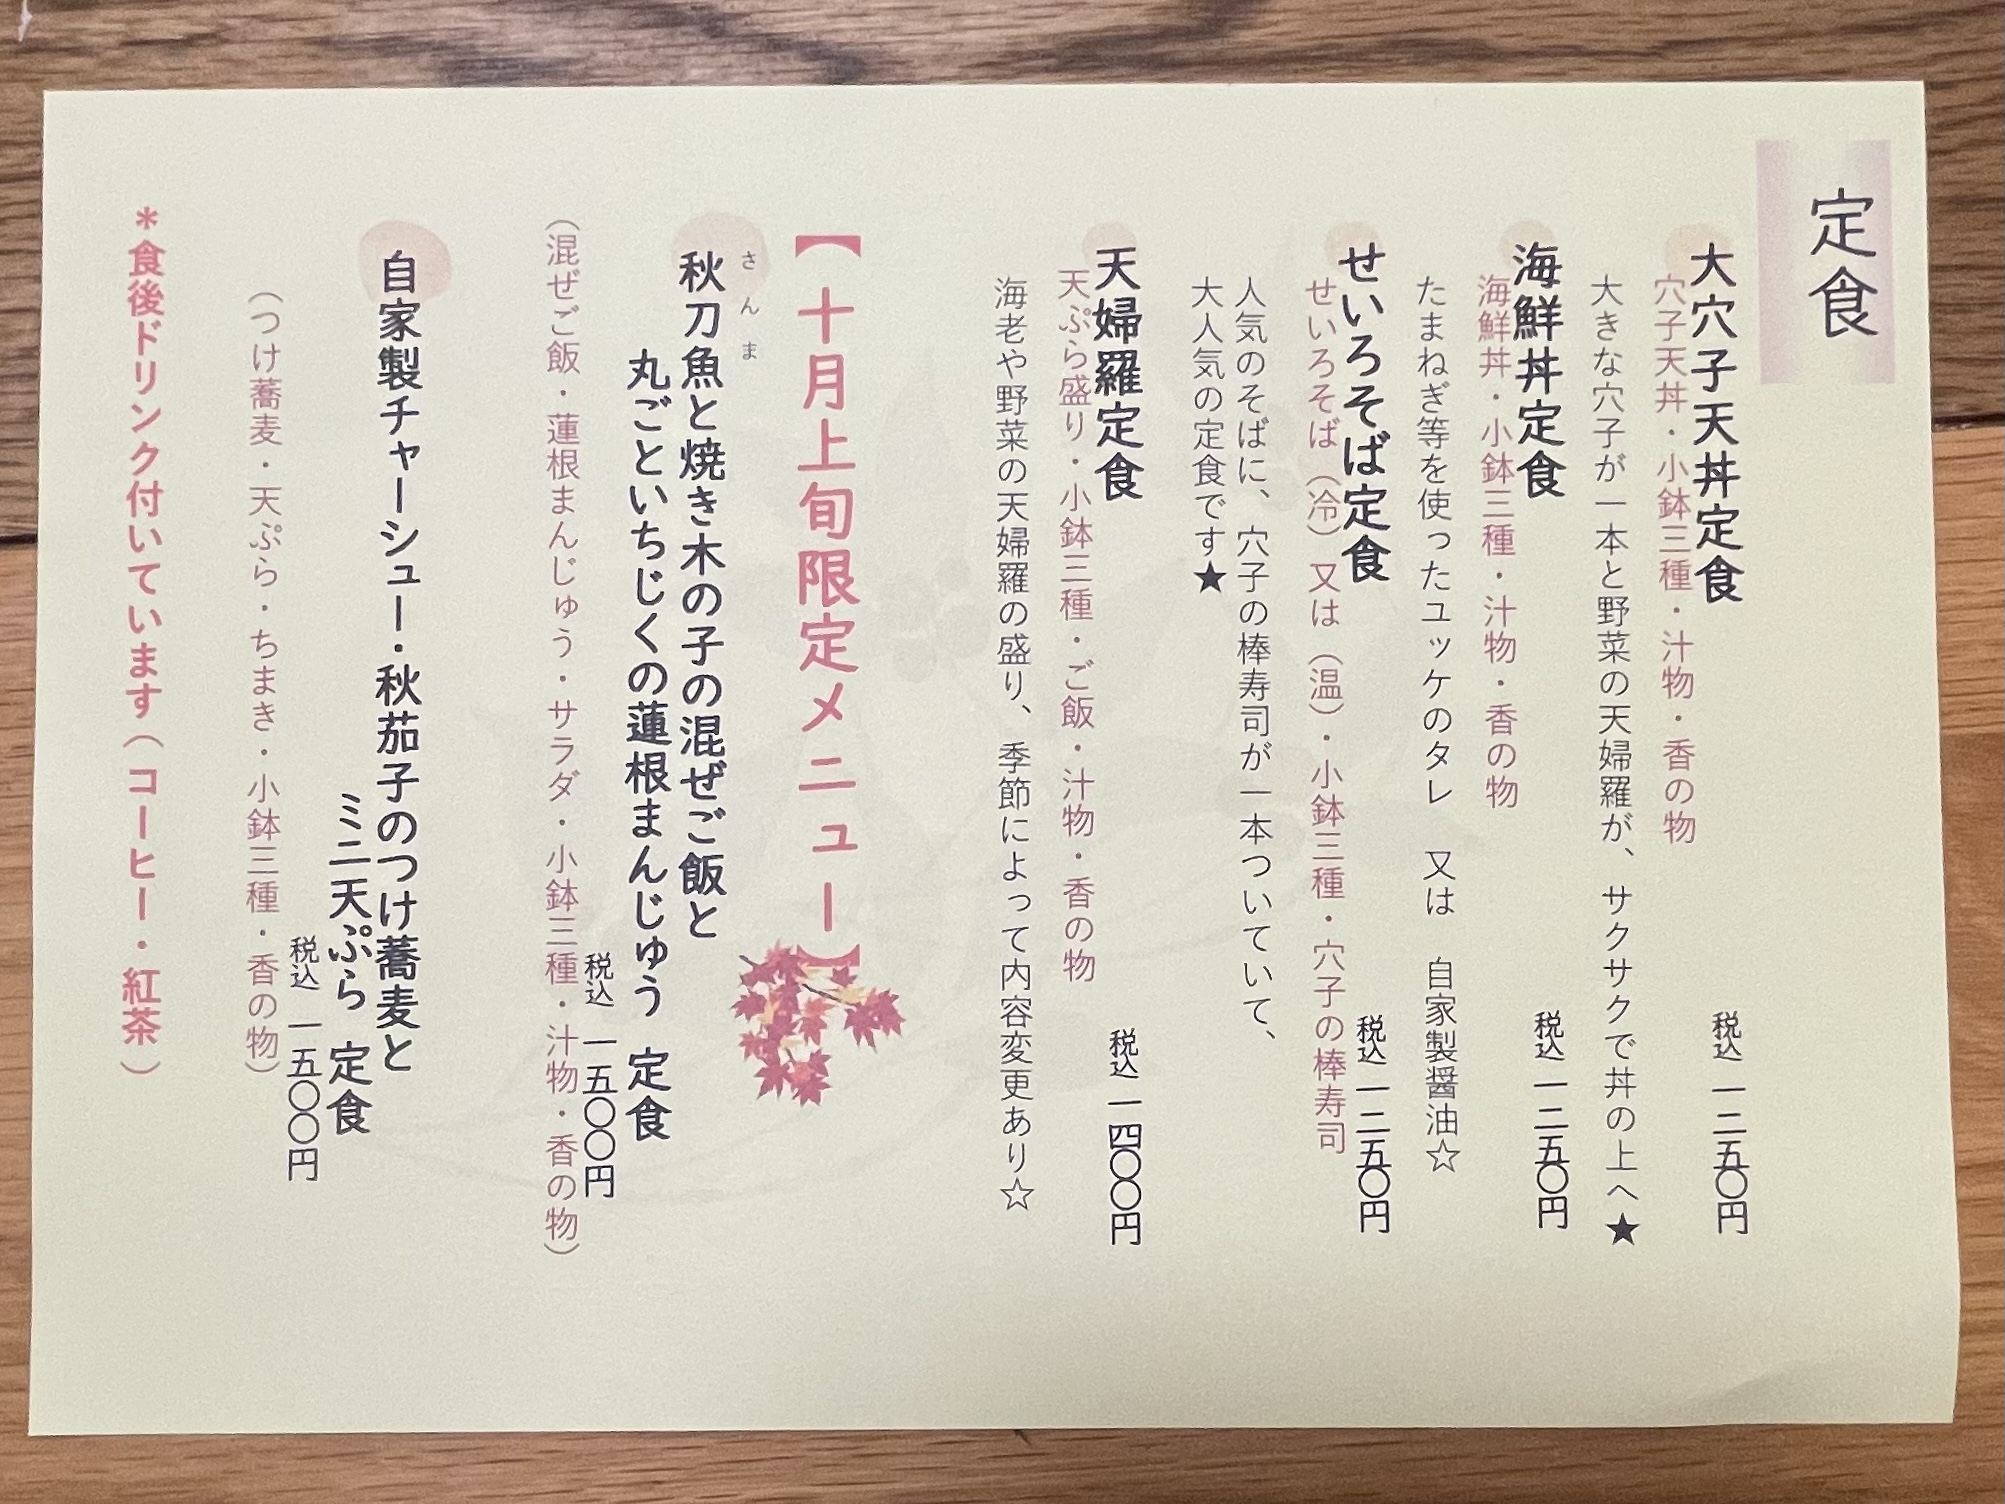 定食
大穴子天丼定食　税込　一二五〇円
穴子天丼・小鉢三種・汁物・香の物
大きな穴子が一本と野菜の天婦羅が、サクサクで丼の上へ★
海鮮丼定食　税込　一二五〇円
海鮮丼・小鉢三種・汁物・香の物
たまねぎ等を使ったユッケのタレ　又は　自家製醤油☆
せいろそば定食　税込　一二五〇円
せいろそば（冷）又は（温）・小鉢三種・穴子の棒寿司
人気のそばに、穴子の棒寿司が一本ついていて、
大人気の定食です★
天婦羅定食　税込　一四〇〇円
天ぷら盛り・小鉢三種・ご飯・汁物・香の物
海老や野菜の天婦羅の盛り、季節によって内容変更あり☆
【十月上旬限定メニュー】
さんま
秋刀魚と焼き木の子の混ぜご飯と
丸ごといちじくの蓮根まんじゅう　定食
税込　一五〇〇円
（混ぜご飯・蓮根まんじゅう・サラダ・小鉢三種・汁物・香の物）
自家製チャーシュー・秋茄子のつけ蕎麦と
ミニ天ぷら　定食
税込　一五〇〇円
（つけ蕎麦・天ぷら・ちまき・小鉢三種・香の物）
＊食後ドリンク付いています（コーヒー・紅茶）